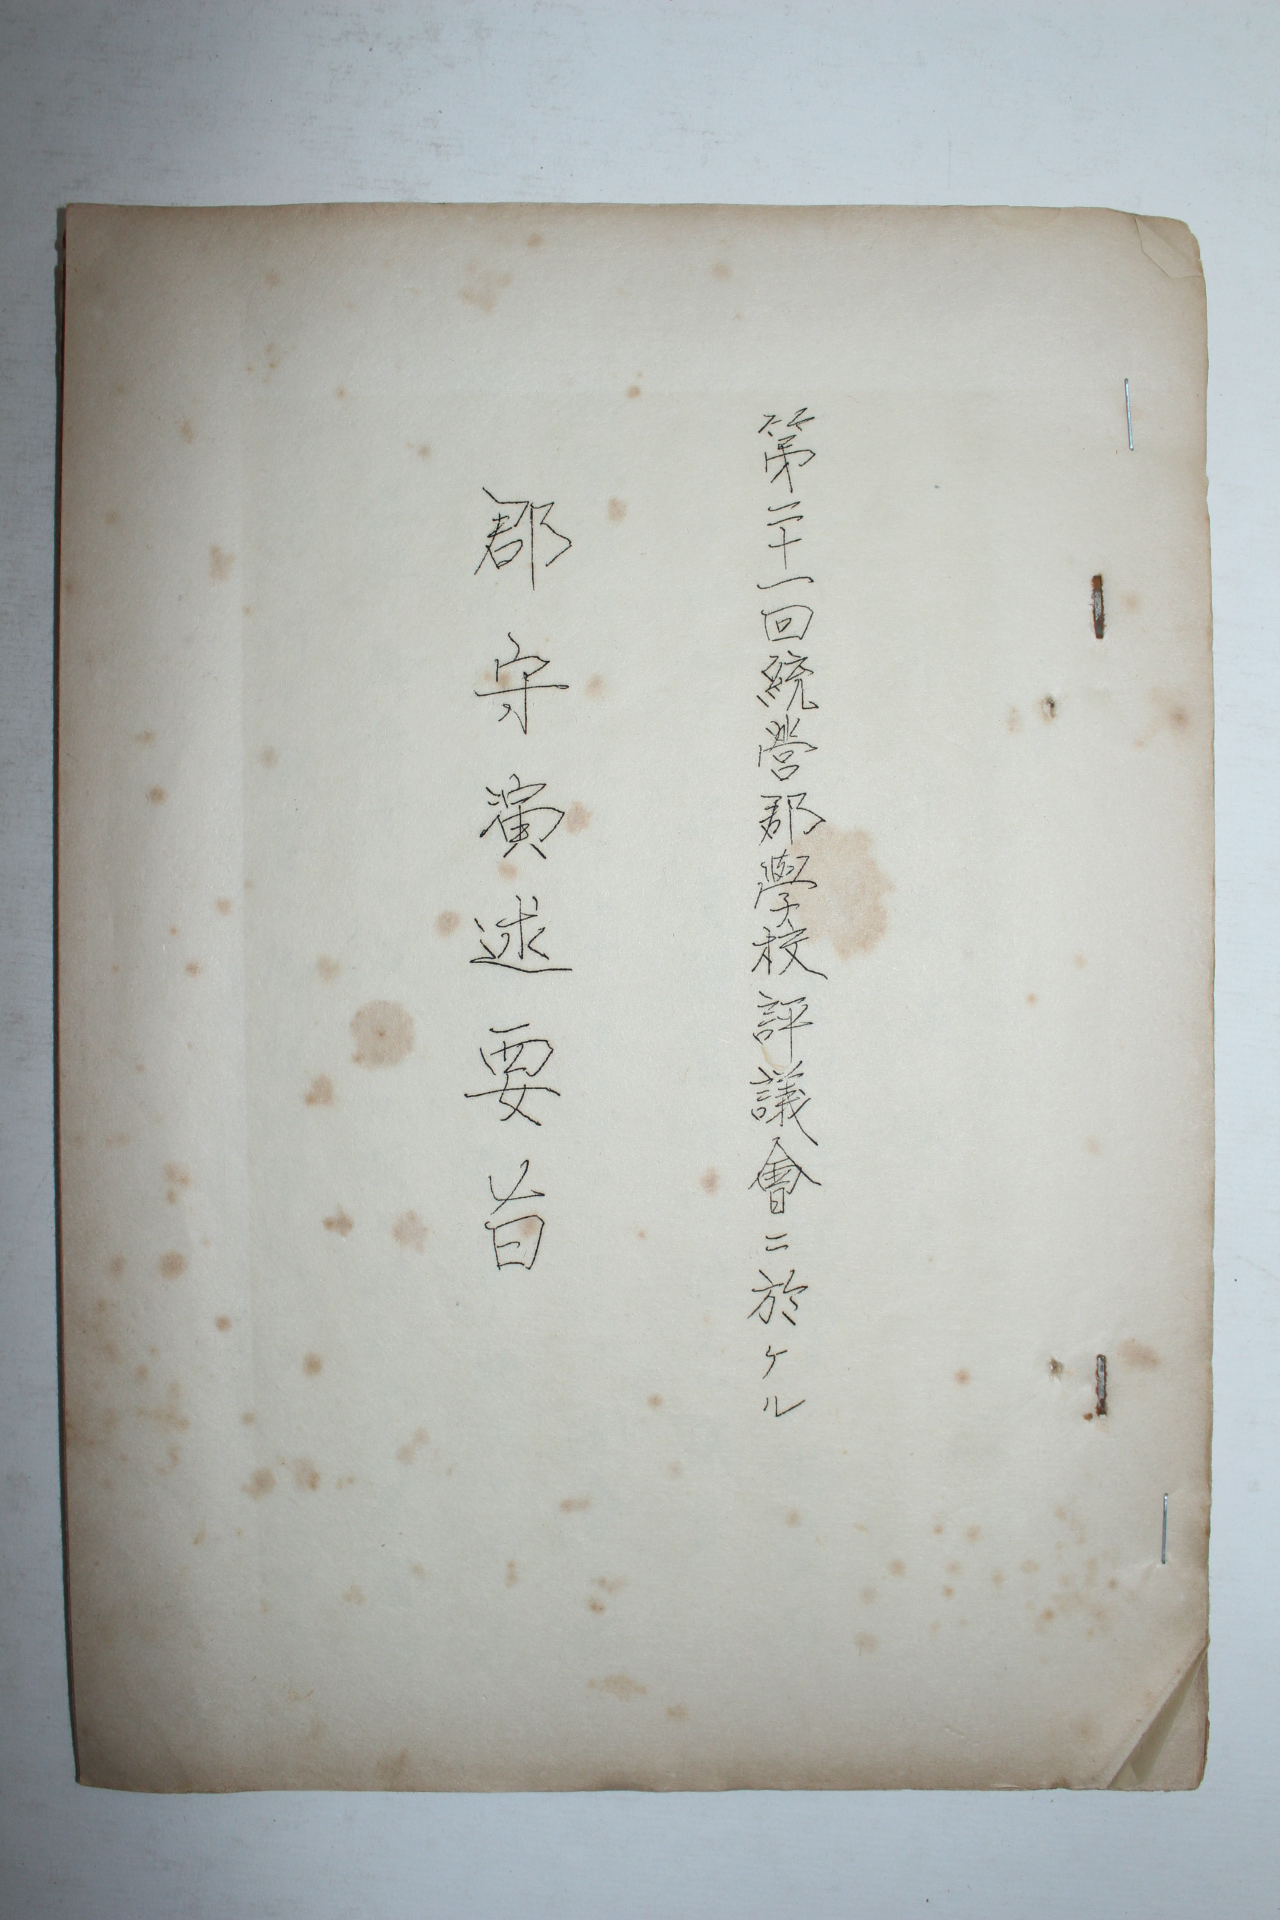 第二十一回統營郡學校評議會ニ於ケル
郡守演述要旨